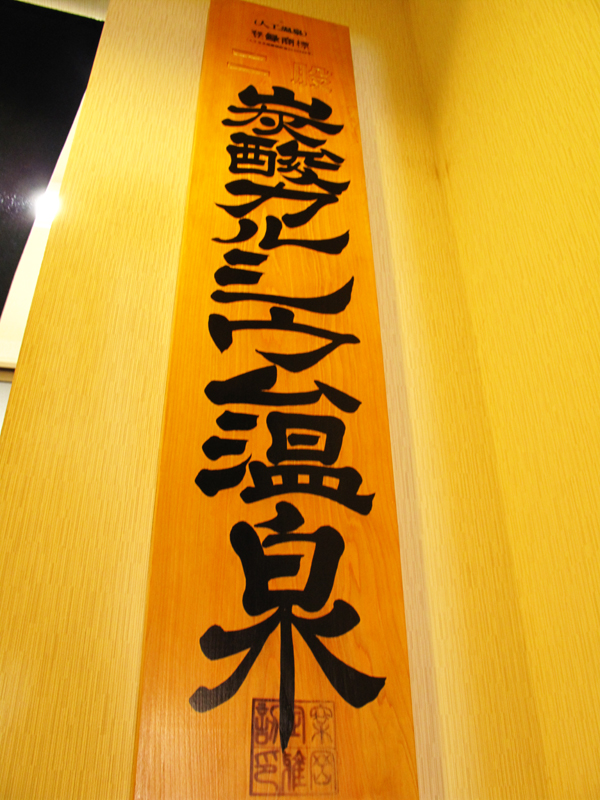 (人工温泉)
登録商標
二股
炭酸カルシウム温泉